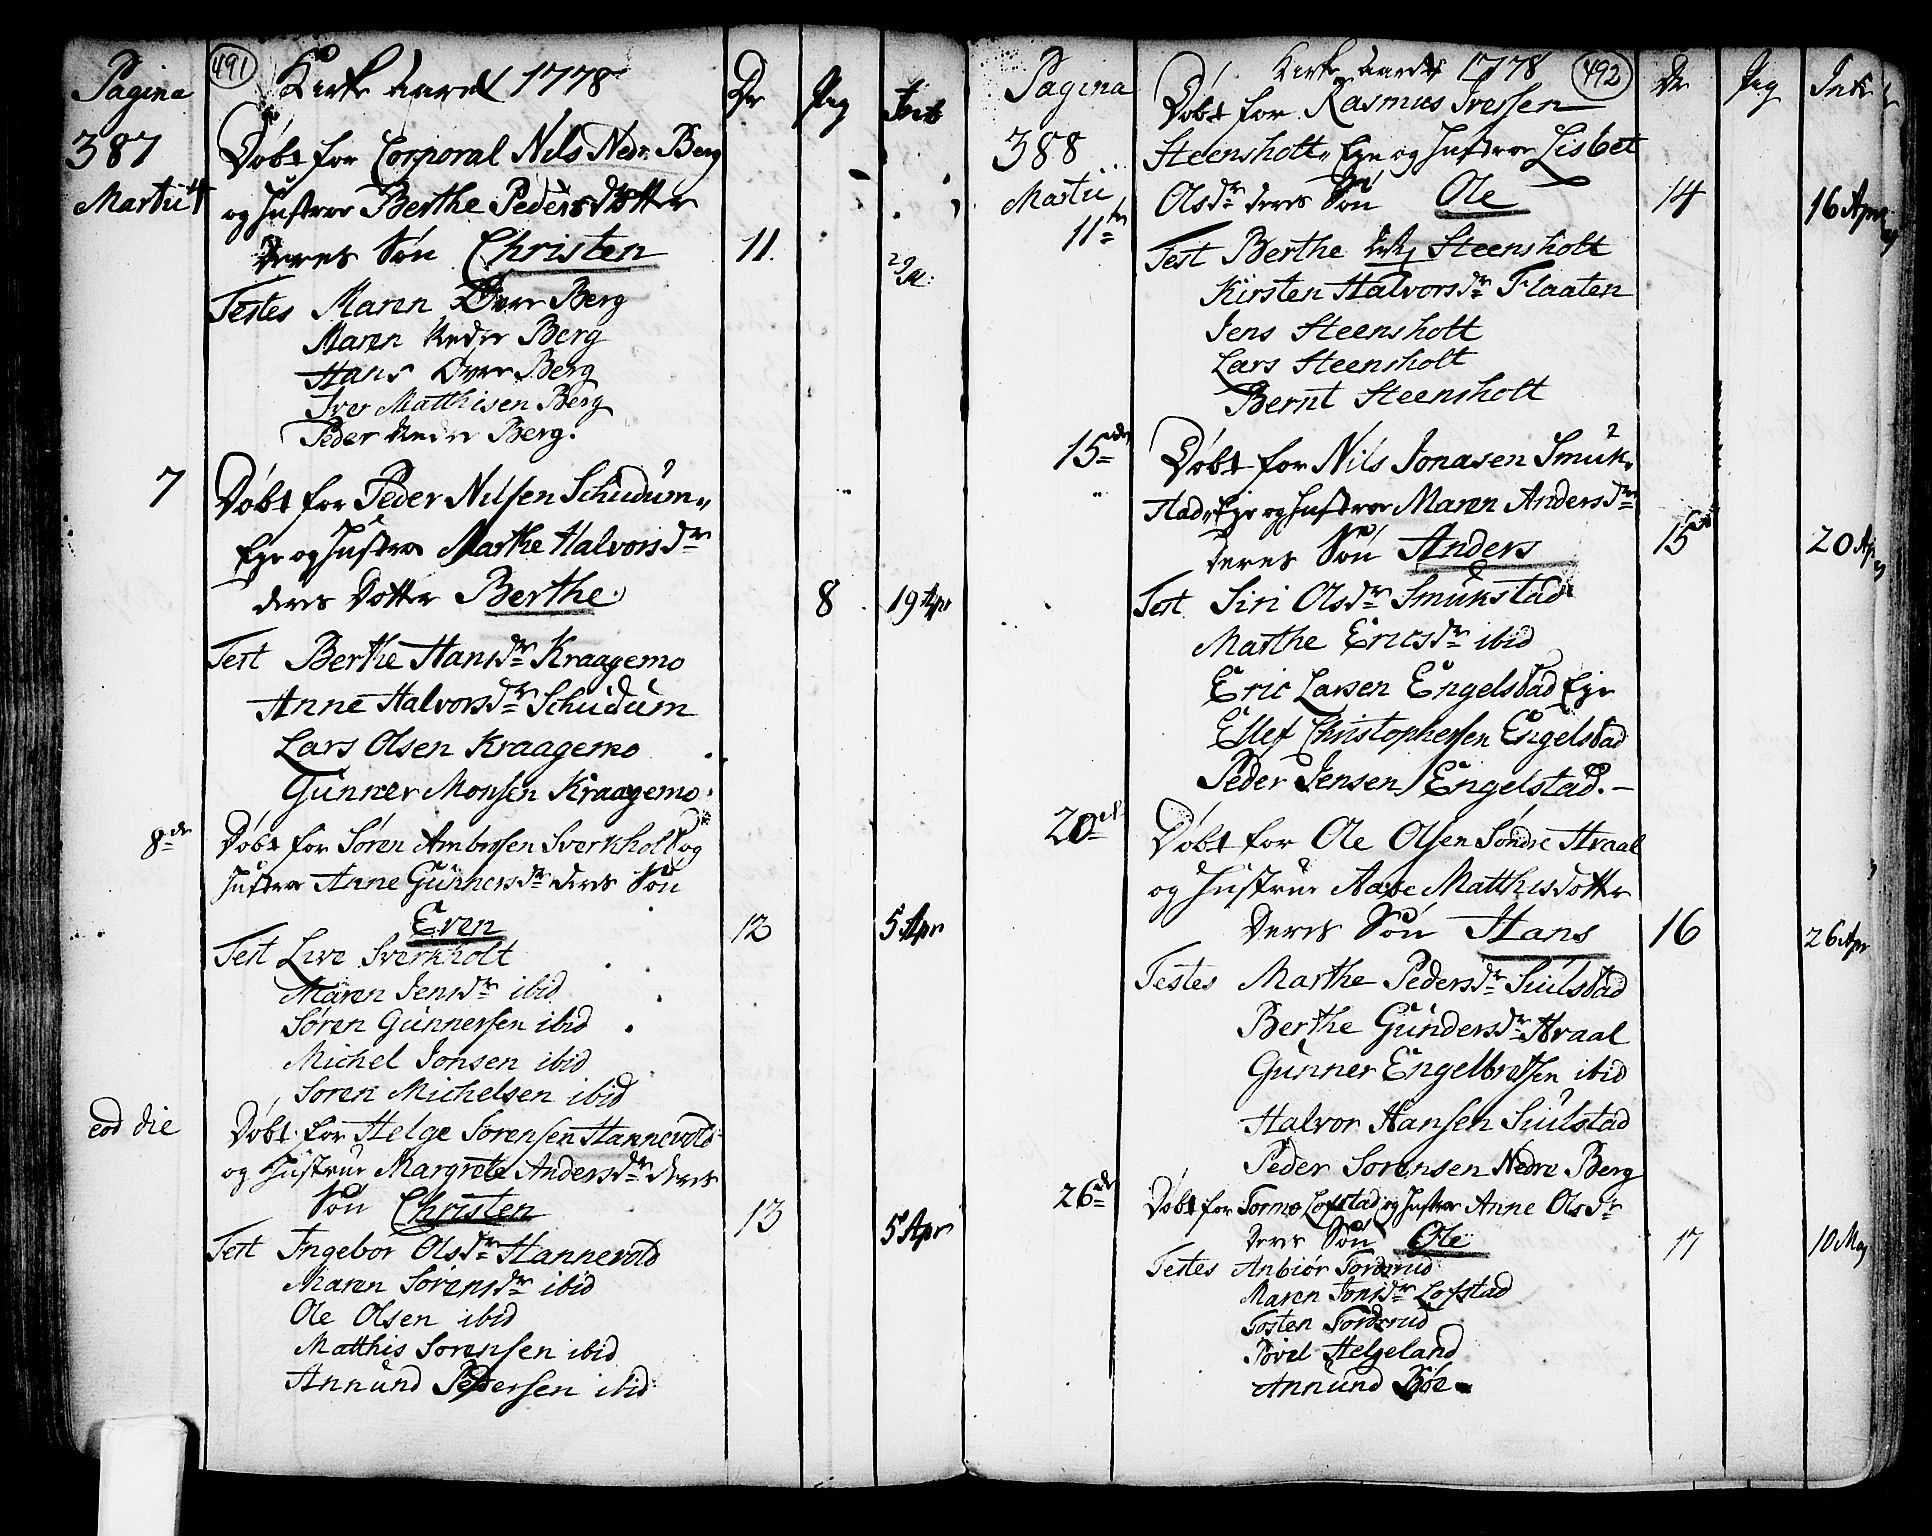 Pagina 491 Kirke Aaret 1778 Dr Pig Intr
387 Døbt for Corporal Nils Nedr. Berg
Martii 4 og Hustrue Berthe Peders Dotter
deres Søn Christen 11.
Testes Maren Øvre Berg
Maren Nedre Berg
Hans Øvre Berg
Iver Matthisen Berg
Peder Nedre Berg.
7 Døbt for Peder Nilsen Schudum,,
Eje og Hustrue Marthe Halvorsdr
deres Dotter Berthe 8 19 Apr
Test Berthe Hansdr Kraagemo
Anne Halvorsdr Schudum
Lars Olsen Kraagemo
Gunner Monsen Kraagemo.
8de Døbt for Søren Ambrosen Sverkholt og
Hustrue Anne Gunnersdr deres Søn
Even 12 5 Apr
Test Live Sverkholt
Maren Jensdr ibid
Søren Gunnersen ibid
Michel Jonsen ibid
Soren Michelsen ibid
eod die Døbt for Helge Sorensen Hannevold
og Hustrue Margrete Andersdr deres
Søn Christen 13 5 Apr
Test Ingebor Olsdr Hannevold
Maren Sørensdr ibid
Ole Olsen ibid
Matthis Sorensen ibid
Annund Pedersen ibid
Pagina Kirke Aaret 1778 492 Dr Pig Intr
Døbt for Rasmus Iversen
388 Steensholt,, Eje og Hustrue Lisbet
Martii Olsdr deres Søn Ole 14 16 Apr
11te Test Berthe Steensholt
Kirsten Halvorsdr Flaaten
Jens Steensholt
Lars Steensholt
Bernt Steensholt
15de Døbt for Nils Jonasen Smuk,
stad,, Eje og Hustrue Maren Andersdr
deres Søn Anders 15 20 Apr
Test Siri Olsdr Smukstad
Marthe Ericsdr ibid
Eric Larsen Engelstad Eje
Ellef Christophersen Engelstad
Peder Jensen Engelstad.
20de Døbt for Ole Olsen Søndre Straal
og Hustrue Aase Matthisdotter
deres Søn Hans 16 26 Apr
Testes Marthe Pedersdr Siulstad
Berthe Gundersdr Straal
Gunner Engelbretsen ibid
Halvor Hansen Siulstad
Peder Sorensen Nedre Berg
26de Døbt for Tormo Lofstad og Hustrue Anne Olsdr
deres Søn Ole 17 10 Maj
Testes Anbiør Tordsrud
Maren Jonsdr Lofstad
Tosten Tordsrud
Povel Helgeland
Annund Bøe